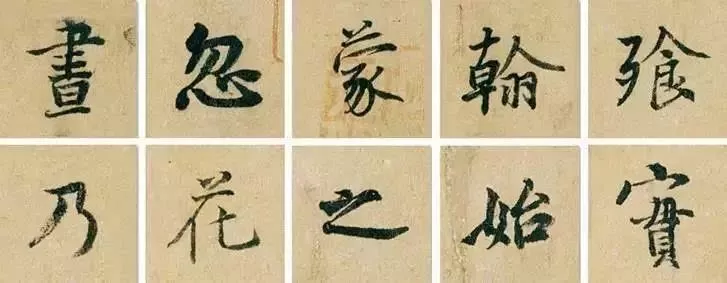 晝忽蒙翰飱
乃花之始實